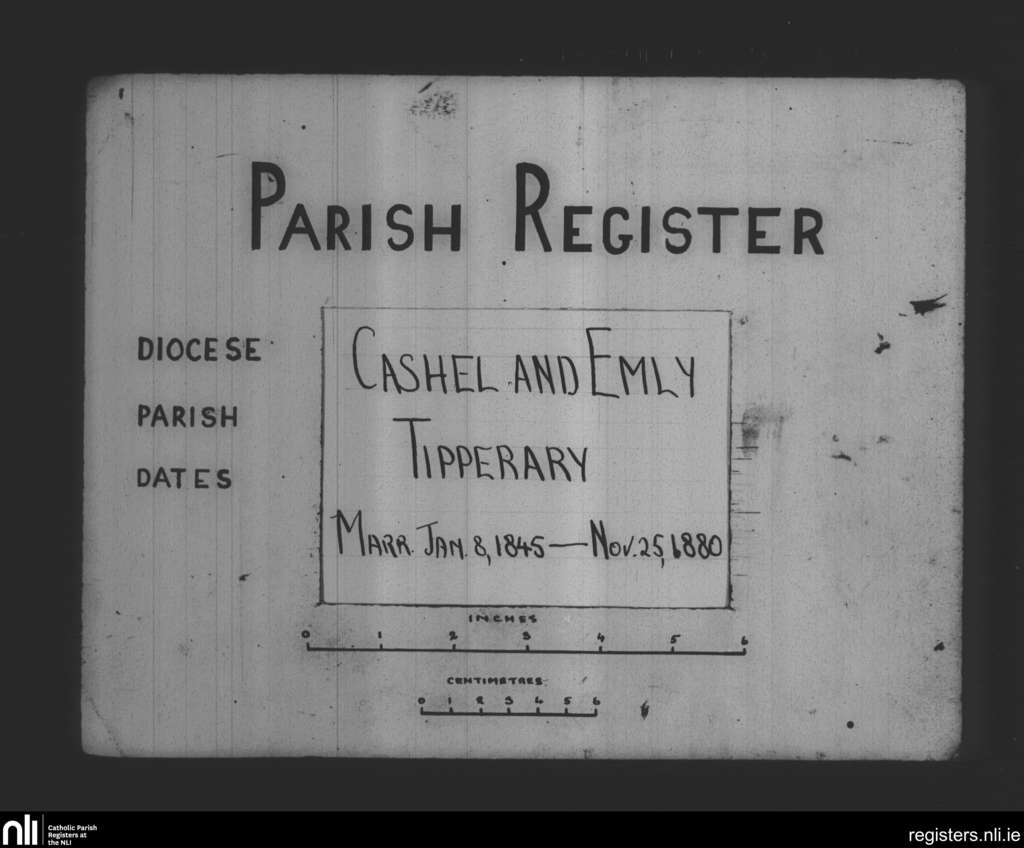 PARISH REGISTER
DIOCESE CASHEL AND EMLY
PARISH TIPPERARY
DATES MARR. JAN. 8, 1845 — NOV. 25, 1880
INCHES
0 1 2 3 4 5 6
CENTIMETRES
0 1 2 3 4 5 6
nli Catholic Parish
Registers at
the NLI
registers.nli.ie